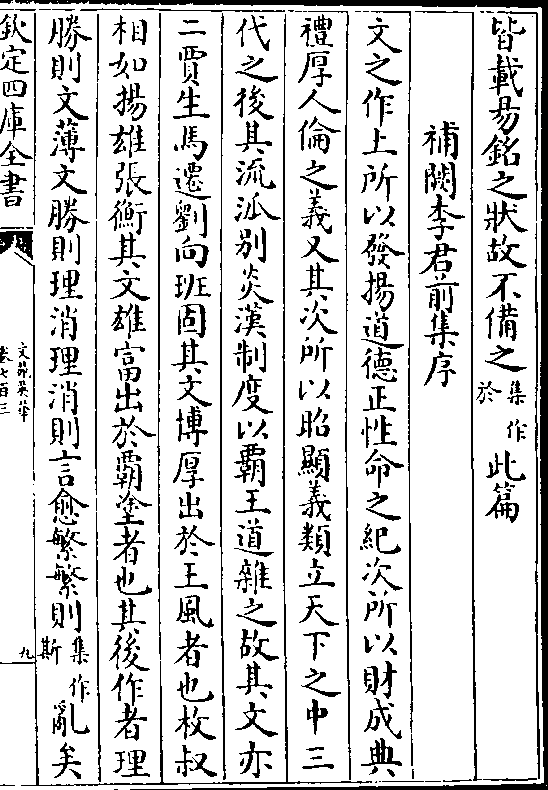 皆載易銘之狀故不備之集作於此篇
補闕李君前集序
文之作上所以發揚道德正性命之紀次所以財成典
禮厚人倫之義又其次所以昭顯義類立天下之中三
代之後其流派别炎漢制度以霸王道雜之故其文亦
二賈生馬遷劉向班固其文博厚出於王風者也枚叔
相如揚雄張衡其文雄富出於霸塗者也其後作者理
勝則文薄文勝則理消理消則言愈繁繁則集作斯亂矣
欽定四庫全書
文苑英華
卷七百三
九